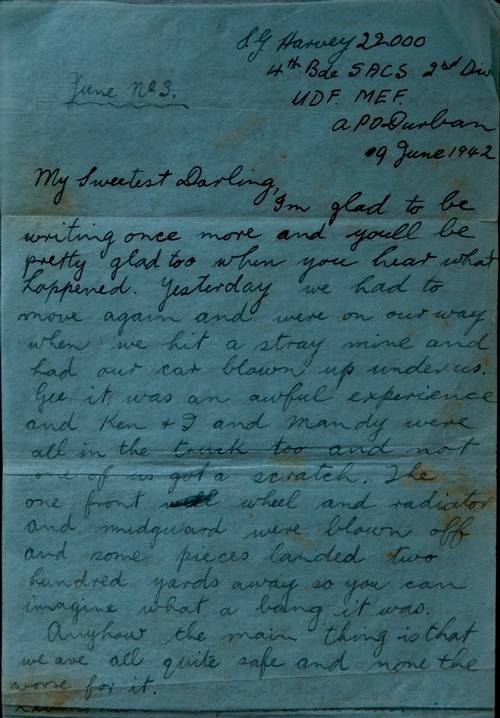 S.G Harvey 22000
4th Bde SACS 2nd Div
UDF. MEF.
A P O Durban
09 June 1942
June No 3.
My Sweetest Darling,
I'm glad to be
writing once more and you'll be
pretty glad too when you hear what
happened. Yesterday we had to
move again and were on our way
when we hit a stray mine and
had our car blown up under us.
Gee it was an awful experience
and Ken & I and Mandy were
all in the truck too and not
one of us got a scratch. The
one front wheel and radiator
and mudguard were blown off
and some pieces landed two
hundred yards away so you can
imagine what a bang it was.
Anyhow the main thing is that
we are all quite safe and none the
worse for it.